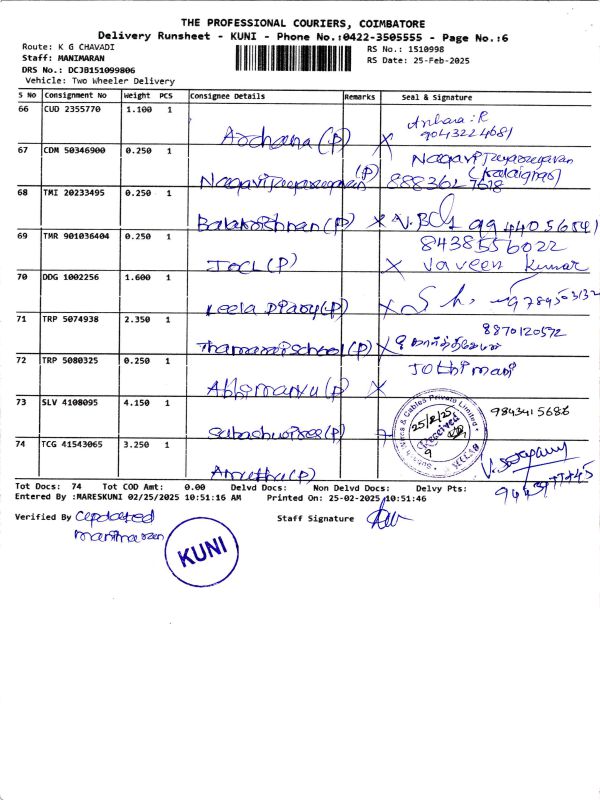 THE PROFESSIONAL COURIERS, COIMBATORE
Delivery Runsheet - KUNI - Phone No.:0422-3505555 - Page No.:6
Route: K G CHAVADI
RS No.: 1510998
Staff: MANIMARAN
RS Date: 25-Feb-2025
DRS No.: DCJB151099806
Vehicle: Two Wheeler Delivery
S No Consignment No Weight PCS Consignee Details Remarks Seal & Signature
66 CUD 2355770 1.100 1 Archana (P)
9043224681
67 CDM 50346900 0.250 1 (P) 8883627618
68 TMI 20233495 0.250 1 Balakrishnan (P) 9944056541
69 TMR 901036404 0.250 1 (P) 8438556022
Kumar
70 DDG 1002256 1.600 1 Leela (P)
71 TRP 5074938 2.350 1 Thamarai school (P) 8870120572
72 TRP 5080325 0.250 1 Abhimanyu (P) Jothimani
73 SLV 4108095 4.150 1 (P) 9843415686
& Cables Private Limited
25/2/25
Received
74 TCG 41543065 3.250 1 (P)
Tot Docs: 74 Tot COD Amt: 0.00 Delvd Docs: Non Delvd Docs: Delvy Pts:
Entered By :MARESKUNI 02/25/2025 10:51:16 AM Printed On: 25-02-2025 10:51:46
Verified By Updated Staff Signature
manimaran
KUNI